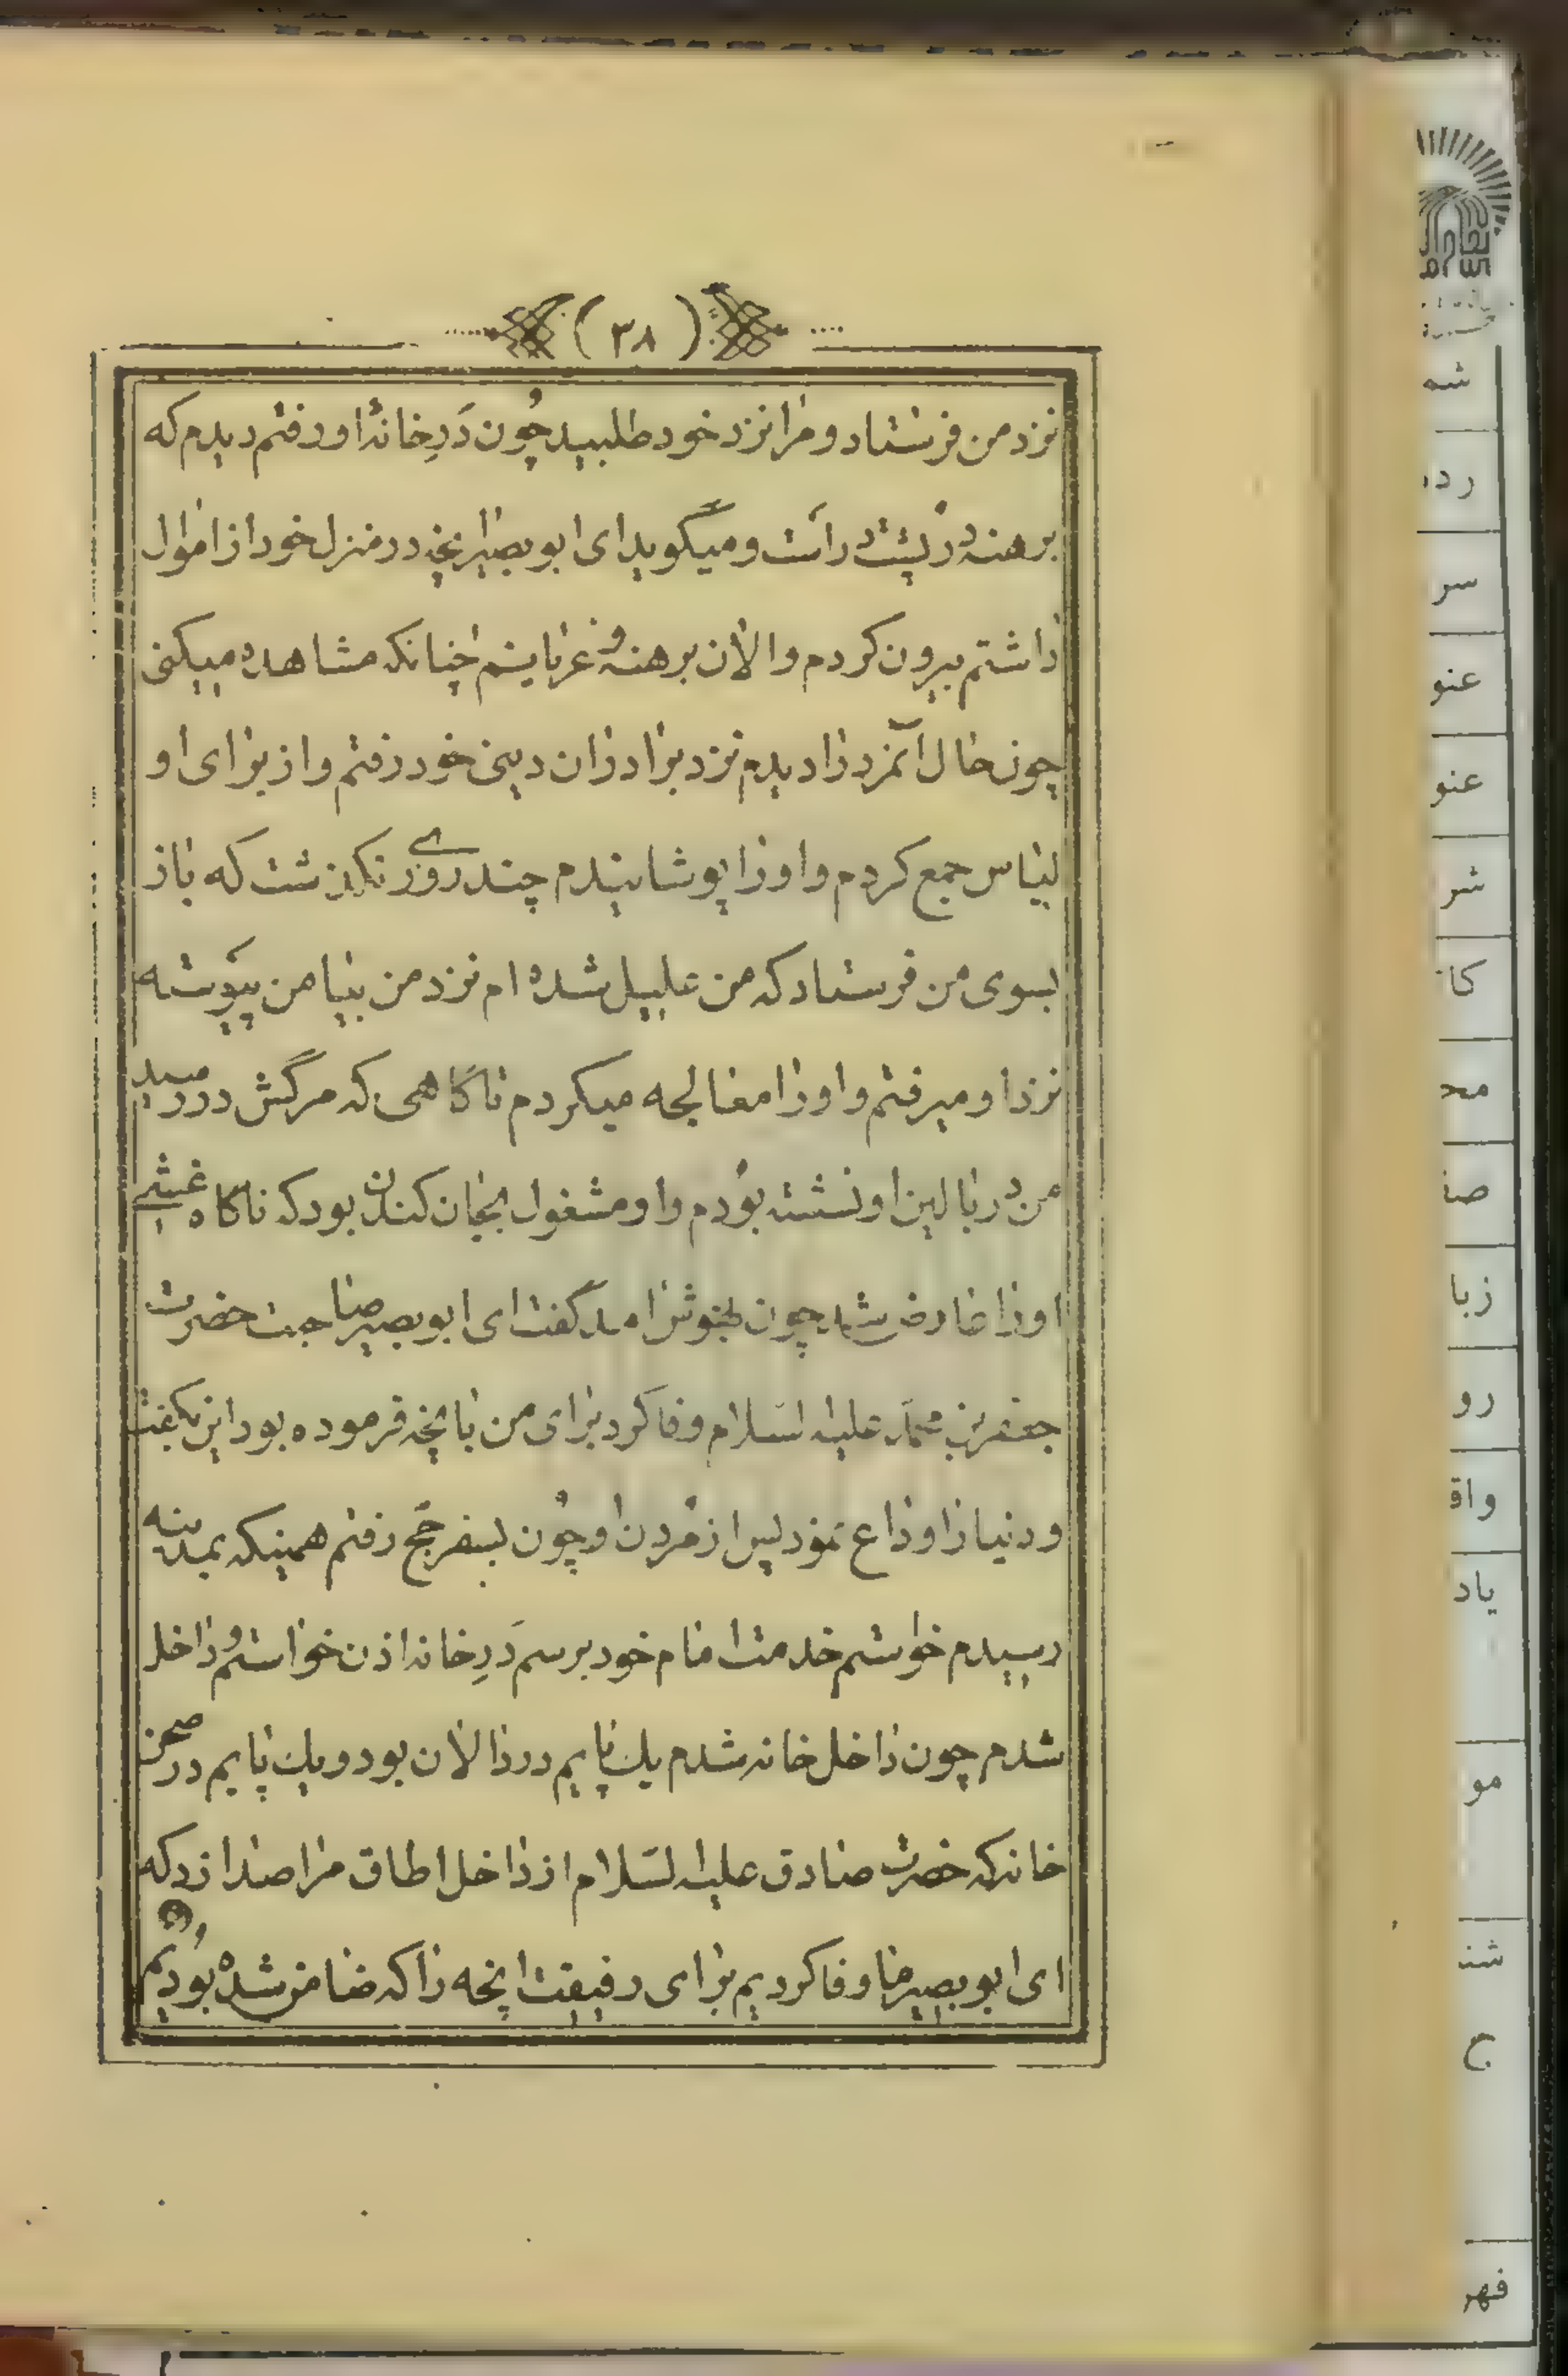 (۳۸)
نزد من فرستاد و مرا نزد خود طلبید چون دَرِ خانهٔ او رفتم دیدم که
برهنه در پشت در است و میگوید ای ابو بصیر انچه در منزل خود از اموال
داشتم بیرون کردم و الان برهنه و عریانیم چنانکه مشاهده میکنی
چون حال آنمرد را دیدم نزد برادران دینی خود رفتم و از برای او
لباس جمع کردم و او را پوشانیدم چند روزی نکذشت که باز
بسوی من فرستاد که من علیل شده ام نزد من بیا من پیوسته
نزد او میرفتم و او را معالجه میکردم تا گاهی که مرگش در رسید
من در بالین او نشسته بودم و او مشغول بجان کندن بود که ناکاه غشی
او را عارض شد چون بهوش امد گفت ای ابو بصیر صاحبت حضرت
جعفر بن محمّد علیه السّلام وفا کرد برای من بانچه فرموده بود این بکفت
و دنیا را وداع نمود پس از مُردن او چُون بسفر حَج رفتم همینکه بمدینه
رسیدم خواستم خدمت امام خود برسم دَرِ خانه اذن خواستم و داخل
شدم چون داخل خانه شدم یك پایم در دالان بود و یك پایم در صحن
خانه که حضرت صادق علیه السّلام از داخل اطاق مرا صدا زد که
ای ابو بصیر ما وفا کردیم برای رفیقت انچه را که ضامن شده بودیم
شم
رد
سر
عنو
عنو
شر
کا
مح
صف
زبا
رو
واق
یاد
مو
شن
ج
فهر